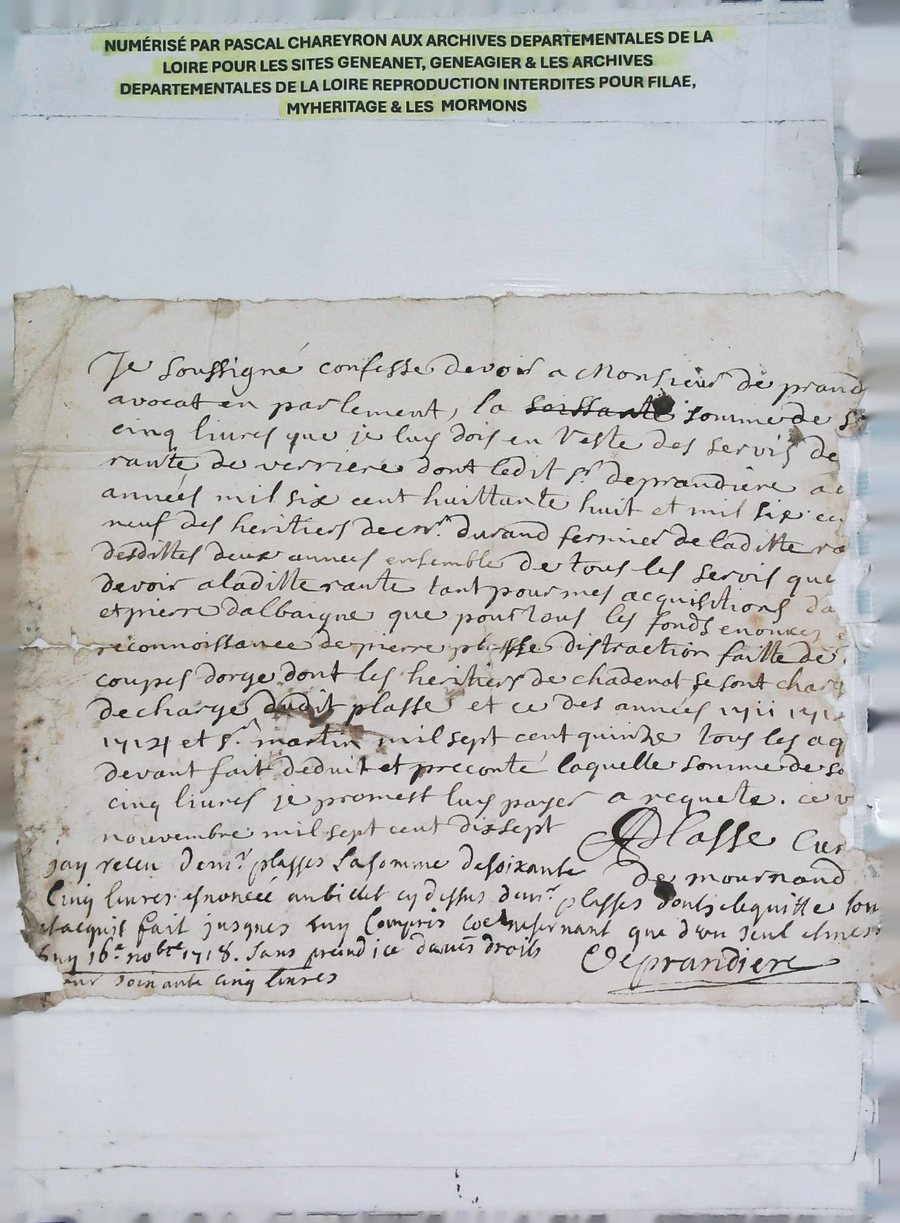 NUMÉRISÉ PAR PASCAL CHAREYRON AUX ARCHIVES DEPARTEMENTALES DE LA
LOIRE POUR LES SITES GENEANET, GENEAGIER & LES ARCHIVES
DEPARTEMENTALES DE LA LOIRE REPRODUCTION INTERDITES POUR FILAE,
MYHERITAGE & LES MORMONS
Je soussigné confesse devoir a Monsieur de prand
avocat en parlement, la soissante somme de
cinq livres que je luy dois en reste des servis de
rante de verriere dont ledit sr. deprandiere a
années mil six cent huittante huit et mil six ce
neuf des heritiers de mr. durand fermier de laditte ra
desdittes deux années ensemble de tous les servis que
devoir a laditte rante tant pour mes acquisitions da
et pierre dalbaigne que pour tous les fonds enoncez
reconnoissance de pierre plasse distraction faitte de
coupes dorge dont les heritiers de chadenat se sont charg
decharge dudit plasse et ce des années 1711 171
1714 et st. martin mil sept cent quinze tous les aq
devant fait deduit et preconté laquelle somme de so
cinq livres je promest luy payer a requete. ce v
nouvembre mil sept cent dix sept Plasse Cur
de mournand
jay receu de mr. plasses la somme de soixante
Cinq livres enoncéé au billet cy dessus de mr. plasses dont je le quitte
et acquis fait jusques a huy Compris que d'un seul
huy 16e. nobre 1718. Sans prejudice de mes droits
Deprandiere
pour soixante cinq livres